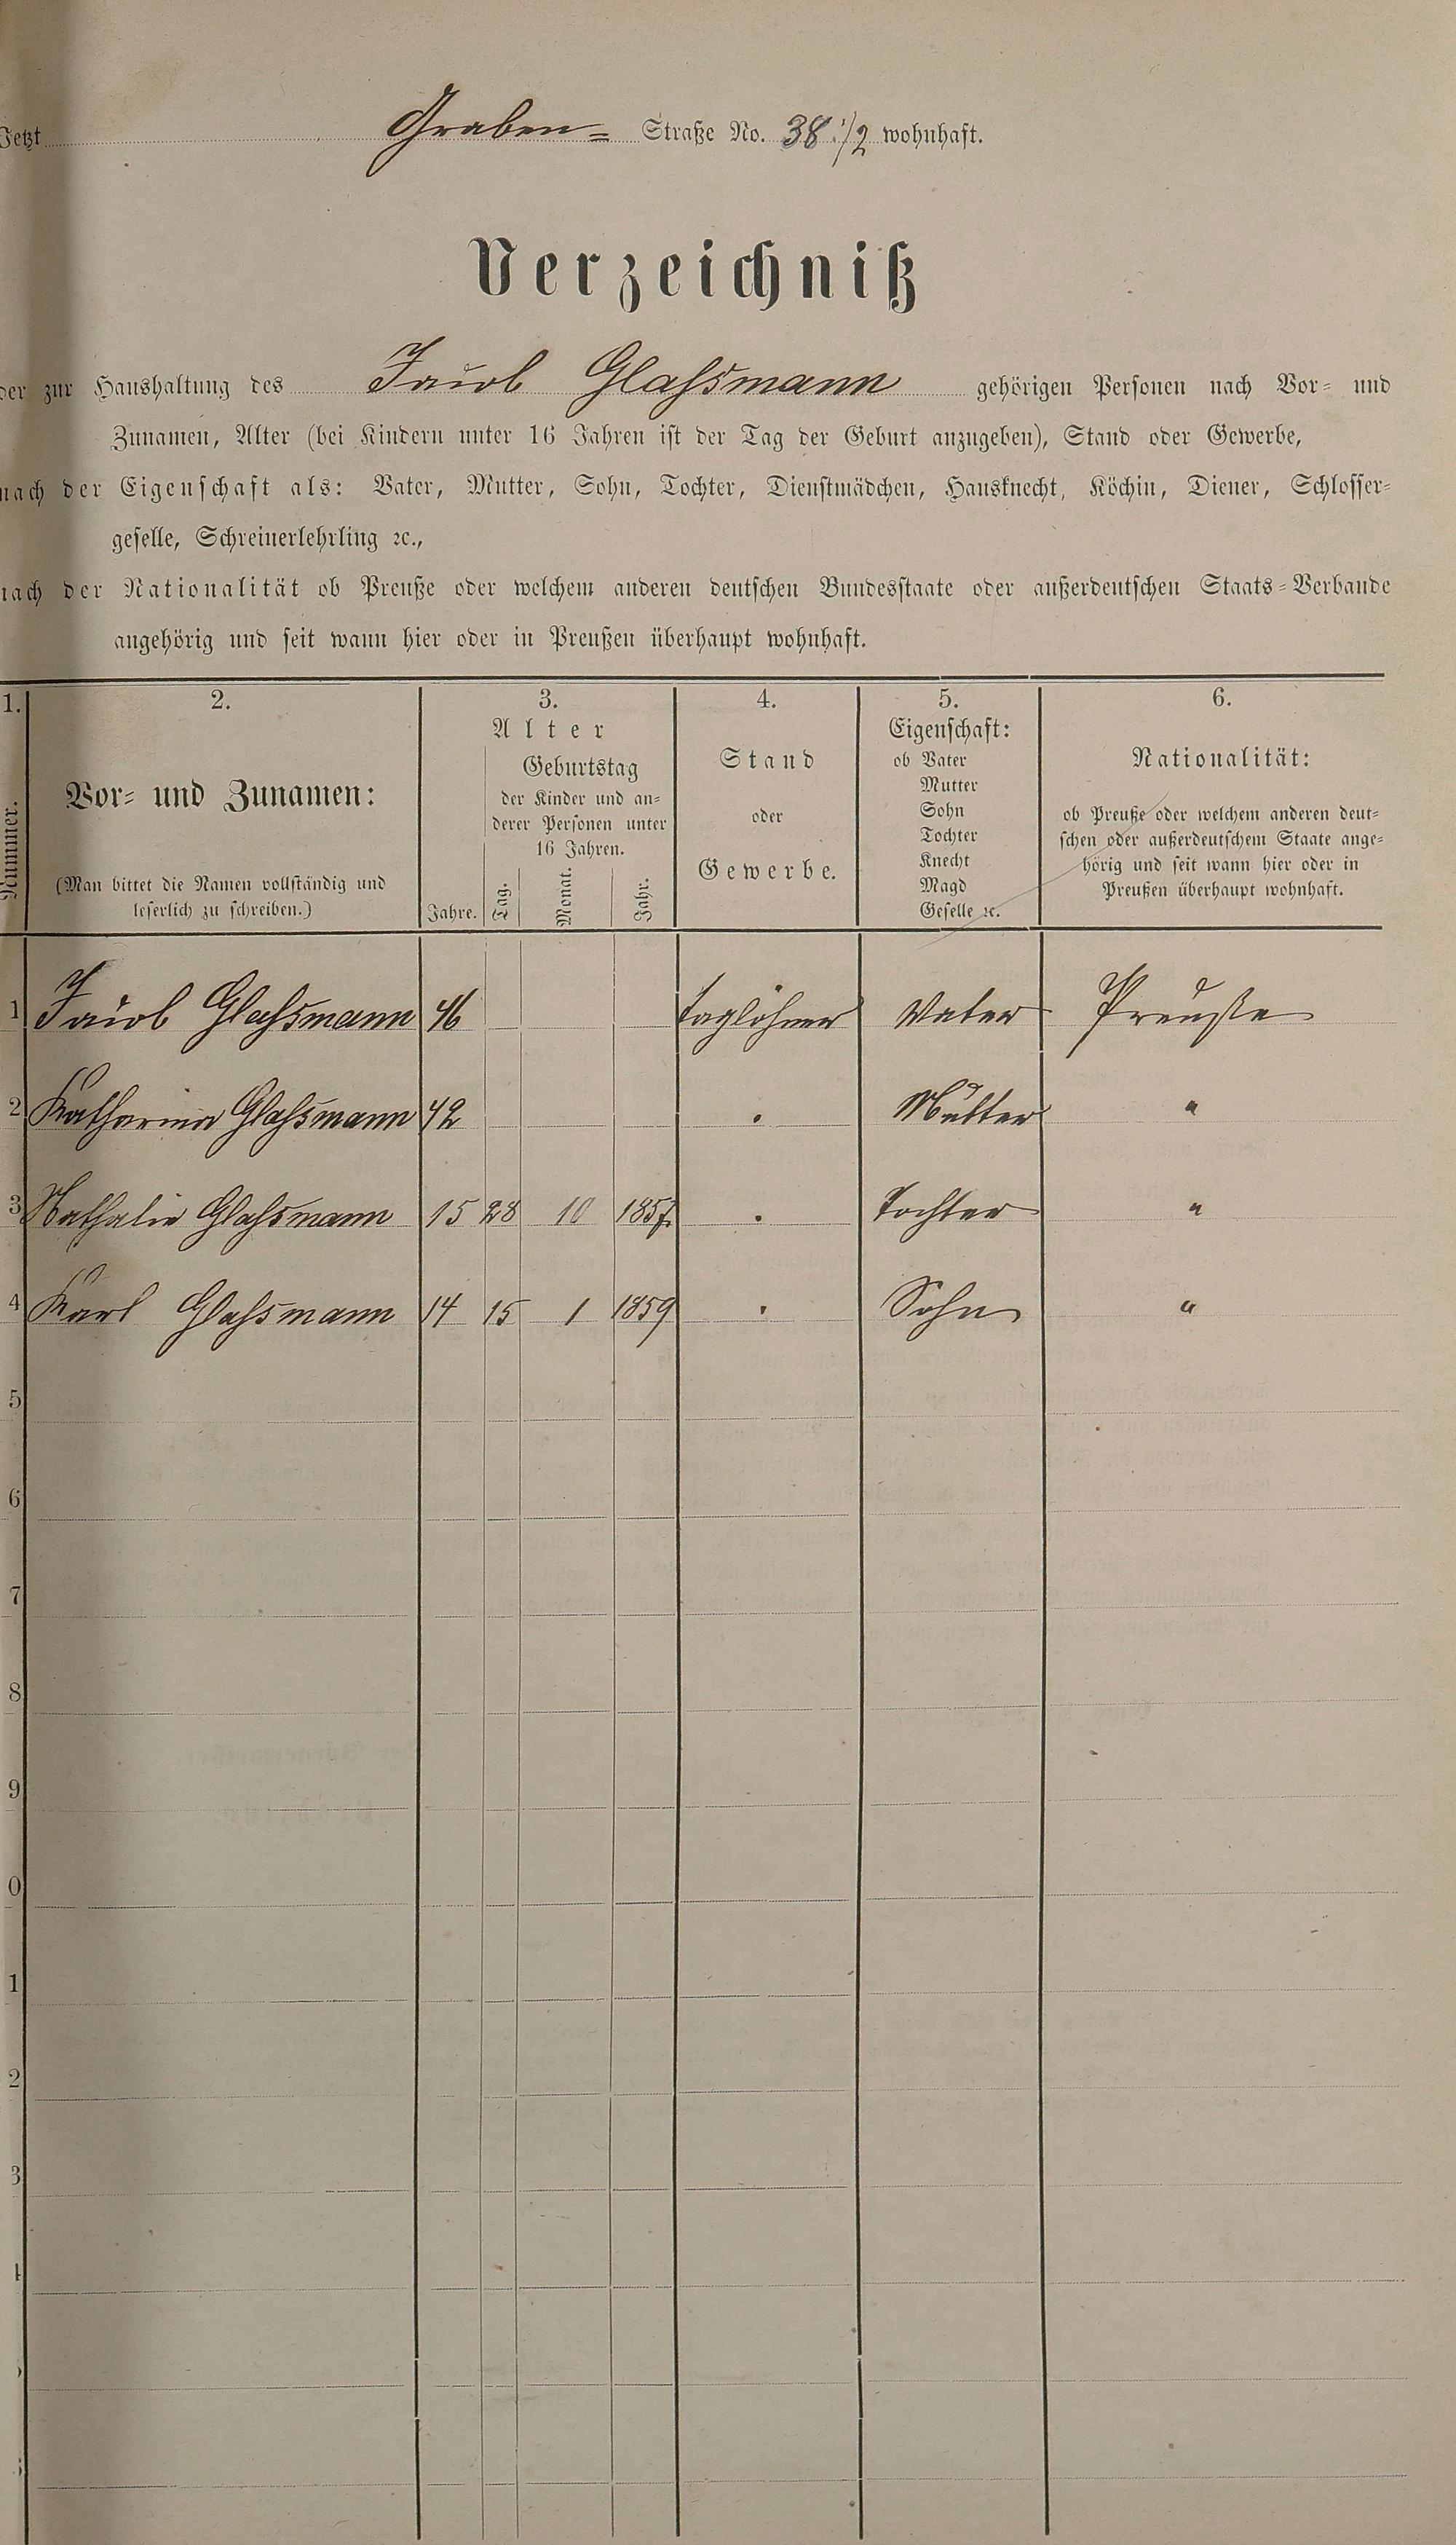 Jetzt Graben= Straße No. 38 1/2 wohnhaft.
Verzeichniß
der zur Haushaltung des Jacob Glaßmann gehörigen Personen nach Vor= und
Zunamen, Alter (bei Kindern unter 16 Jahren ist der Tag der Geburt anzugeben), Stand oder Gewerbe,
nach der Eigenschaft als: Vater, Mutter, Sohn, Tochter, Dienstmädchen, Hausknecht, Köchin, Diener, Schlosser=
geselle, Schreinerlehrling ꝛc.,
nach der Nationalität ob Preuße oder welchem anderen deutschen Bundesstaate oder außerdeutschen Staats=Verbande
angehörig und seit wann hier oder in Preußen überhaupt wohnhaft.
1. 2. 3. 4. 5. 6.
Nummer.
Vor= und Zunamen:
(Man bittet die Namen vollständig und
leserlich zu schreiben.)
Alter
Jahre.
Geburtstag
der Kinder und an=
derer Personen unter
16 Jahren.
Tag. Monat. Jahr.
Stand
oder
Gewerbe.
Eigenschaft:
ob Vater
Mutter
Sohn
Tochter
Knecht
Magd
Geselle ꝛc.
Nationalität:
ob Preuße oder welchem anderen deut=
schen oder außerdeutschem Staate ange=
hörig und seit wann hier oder in
Preußen überhaupt wohnhaft.
1 Jacob Glaßmann 46 Taglöhner Vater Preuße
2 Katharina Glaßmann 42 . Mutter "
3 Nathalie Glaßmann 15 28 10 1857 . Tochter "
4 Karl Glaßmann 14 15 1 1859 . Sohn "
5
6
7
8
9
0
1
2
3
4